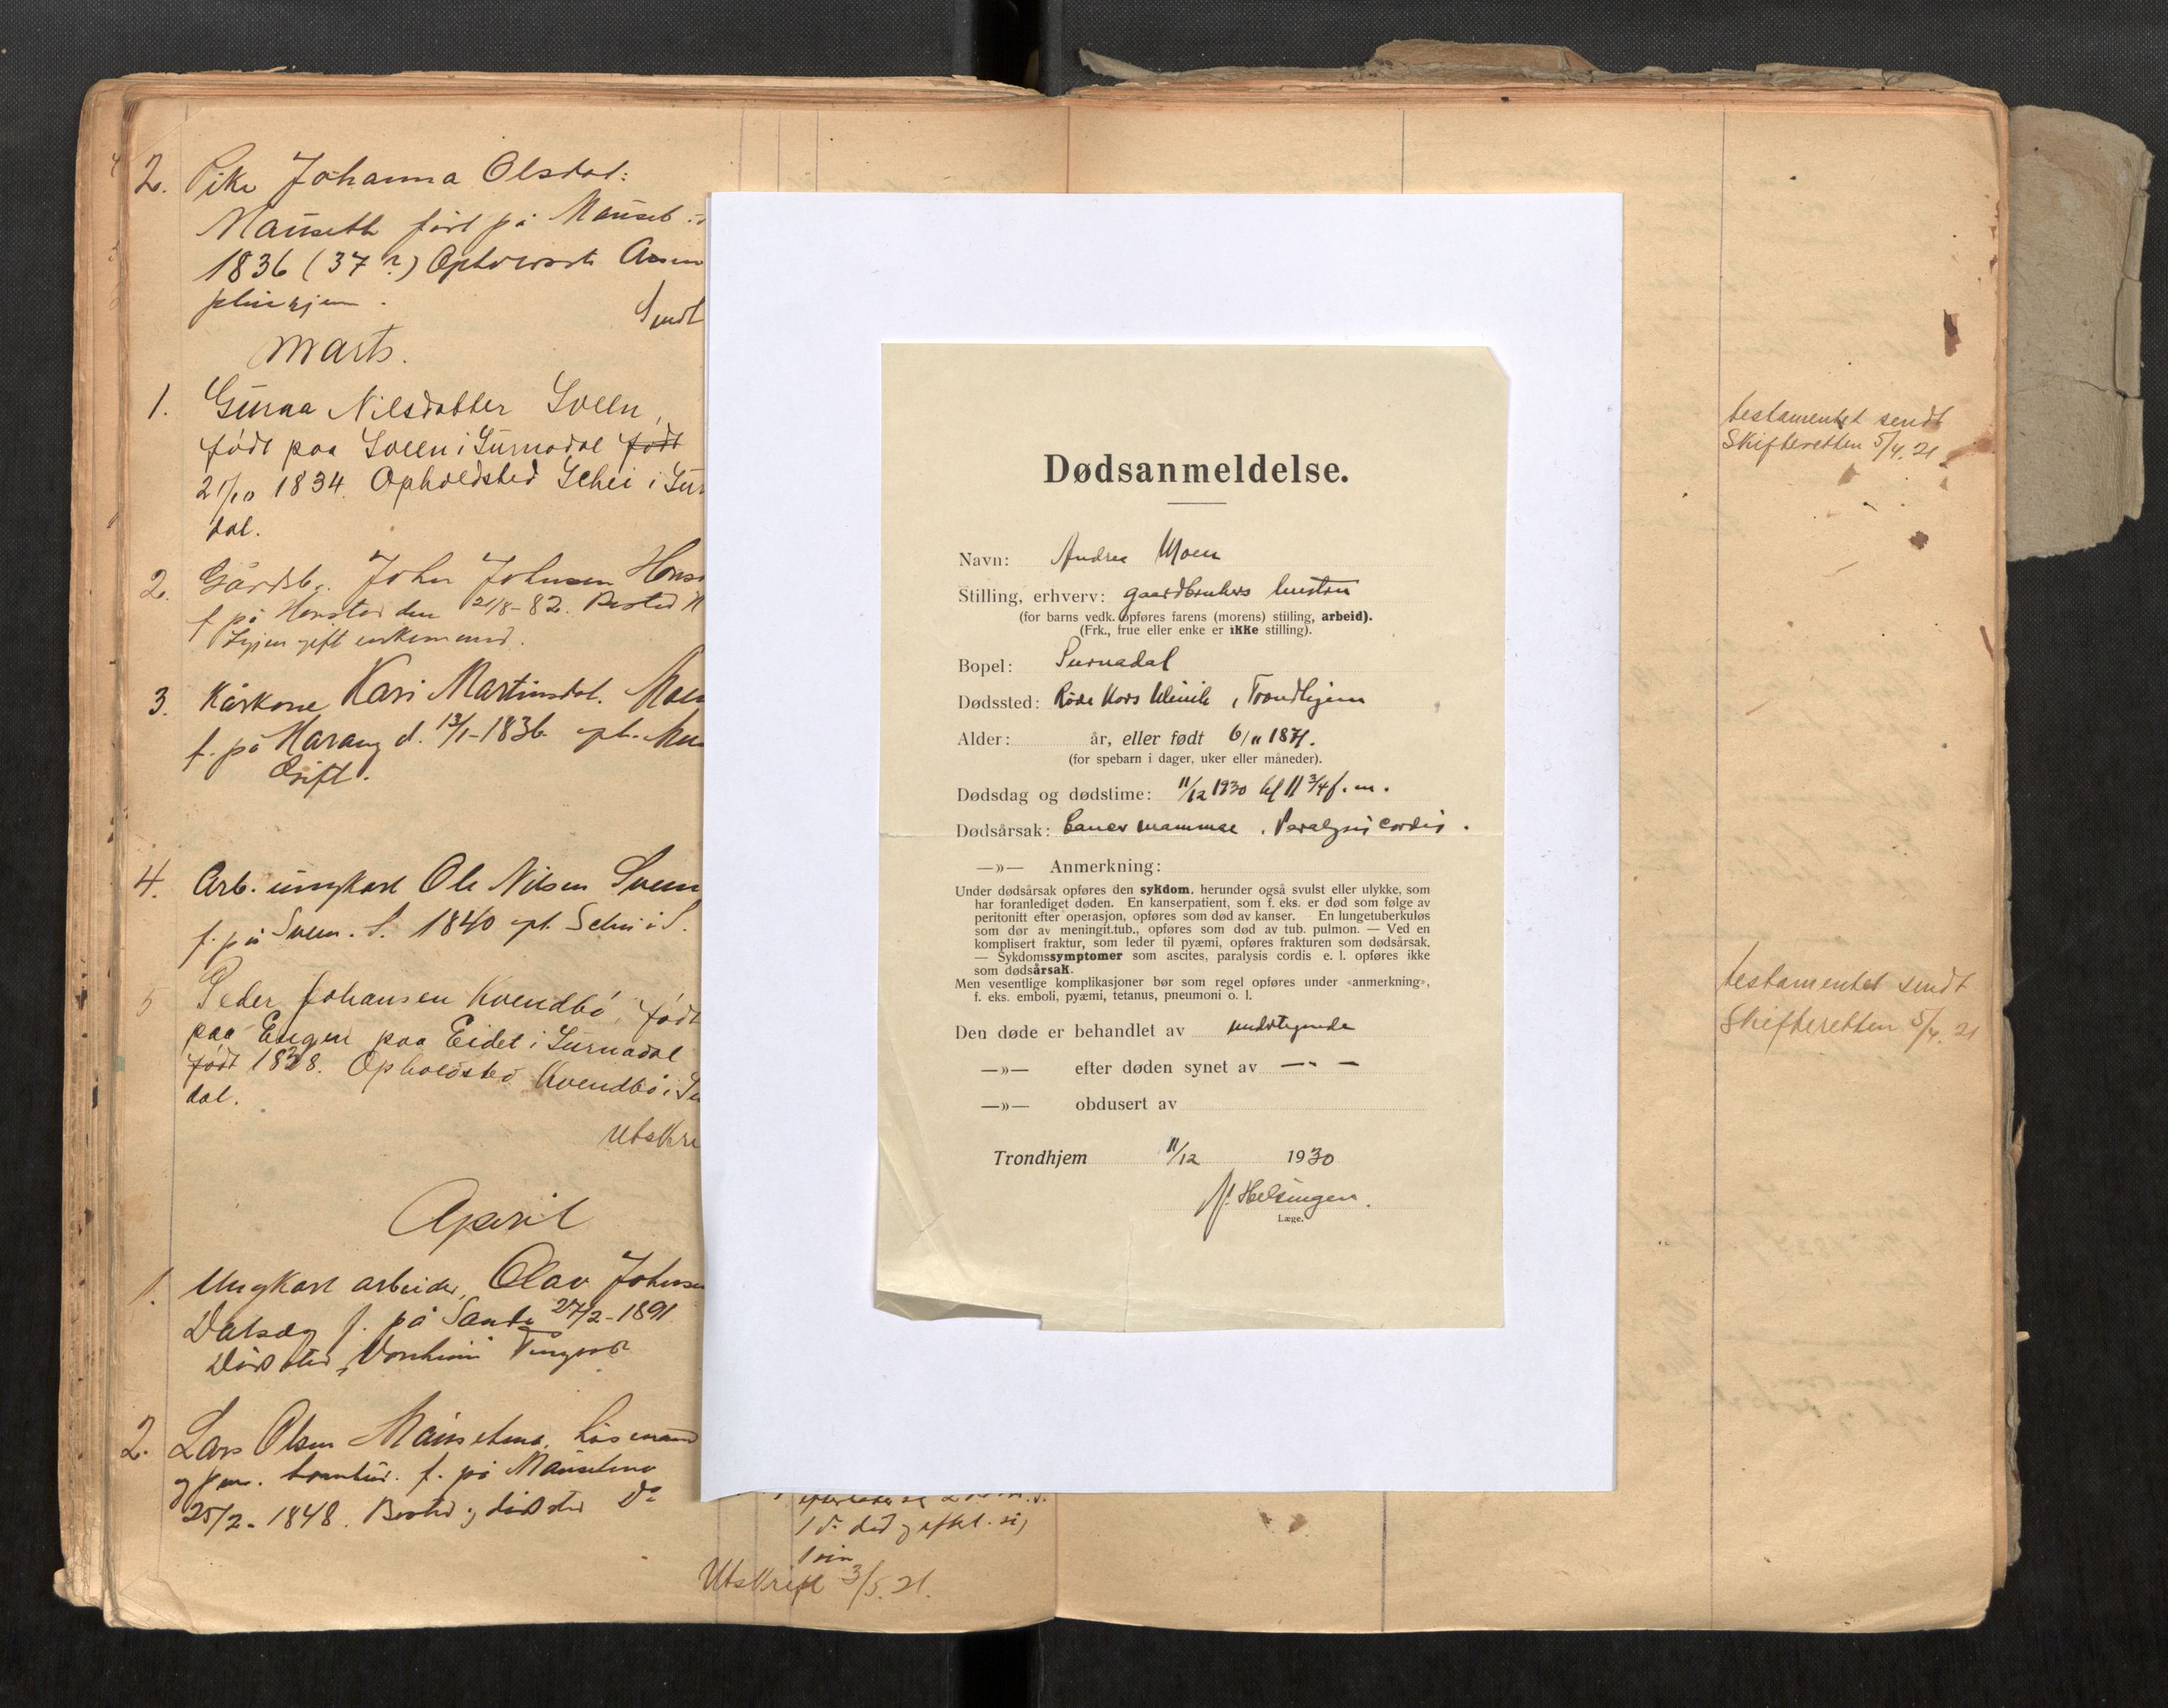 2. Pike Johanna Olsdat:
Mauseth født på Mauset
1836 (37?)
pleiehjem.
Sendt
Marts.
1. Guraa Nilsdatter Sveen,
født paa Sveen i Surnadal født
21/10 1834. Opholdsted Schei i Sur
dal.
2. Gårdbr. John Johnsen
f. på Honstad den 21/8-82. Bosted
gift enkemand.
3. Kårkone Kari Martinsdat. Moen
f. på Harang d. 13/1-1836 oph.
Drift.
4. Arb. ungkarl Ole Nilsen Sveen
f. på Sveen. S. 1840 oph. Schei i S.
5 Peder Johansen Kvendbø, født
paa Engen paa Eidet i Surnadal
født 1838. Opholdsted Kvendbø i Su
dal.
Utskri
April
1. Ungkarl arbeider, Olav Johnsen
Dalsæg f. på Sande 27/2-1891
Dødssted, Tingvoll
2. Lars Olsen Mausethmo, husmand
f. på Mausetmo
25/2-1848. Bosted og dødssted do
1 do død
Utskrift 3/5.21.
Dødsanmeldelse.
Navn: Andrea Moen
Stilling, erhverv: gaardbrukers hustru
(for barns vedk. opføres farens (morens) stilling, arbeid).
(Frk., frue eller enke er ikke stilling).
Bopel: Surnadal
Dødssted: Røde Kors Klinik, Trondhjem
Alder: år, eller født 6/11 1871.
(for spebarn i dager, uker eller måneder).
Dødsdag og dødstime: 11/12 1930 kl 11 3/4 f.m.
Dødsårsak: Cancer mammae, Paralysis cordis.
—»— Anmerkning:
Under dødsårsak opføres den sykdom, herunder også svulst eller ulykke, som
har foranlediget døden. En kanserpatient, som f. eks. er død som følge av
peritonitt efter operasjon, opføres som død av kanser. En lungetuberkuløs
som dør av meningit.tub., opføres som død av tub. pulmon. — Ved en
komplisert fraktur, som leder til pyæmi, opføres frakturen som dødsårsak.
— Sykdomssymptomer som ascites, paralysis cordis e. l. opføres ikke
som dødsårsak.
Men vesentlige komplikasjoner bør som regel opføres under «anmerkning»,
f. eks. emboli, pyæmi, tetanus, pneumoni o. l.
Den døde er behandlet av undertegnede
—»— efter døden synet av —"—
—»— obdusert av
Trondhjem 11/12 1930
N. Helsingen.
Læge.
testamentet sendt
Skifteretten 5/4.21
testamentet sendt
Skifteretten 5/4.21